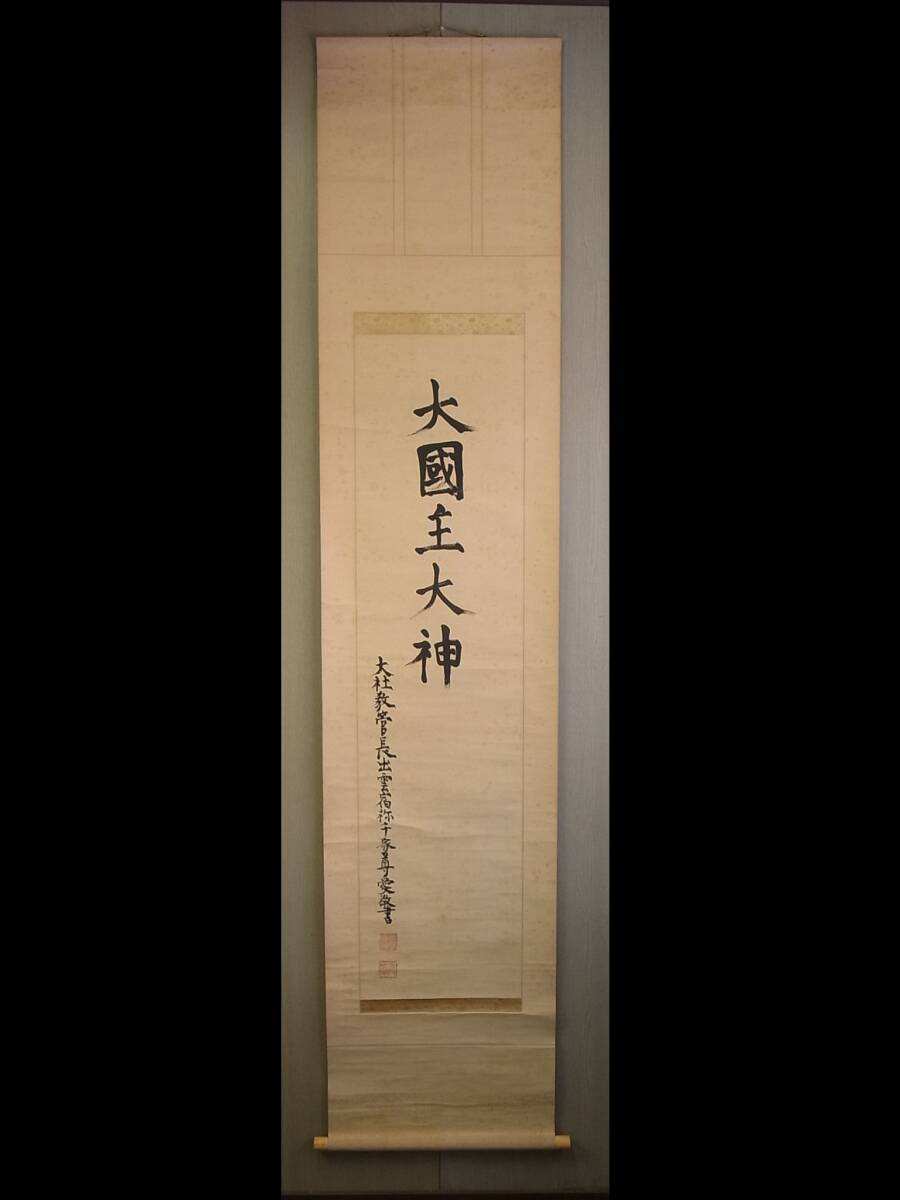 大國主大神
大社教管長出雲宿祢千家尊愛敬書